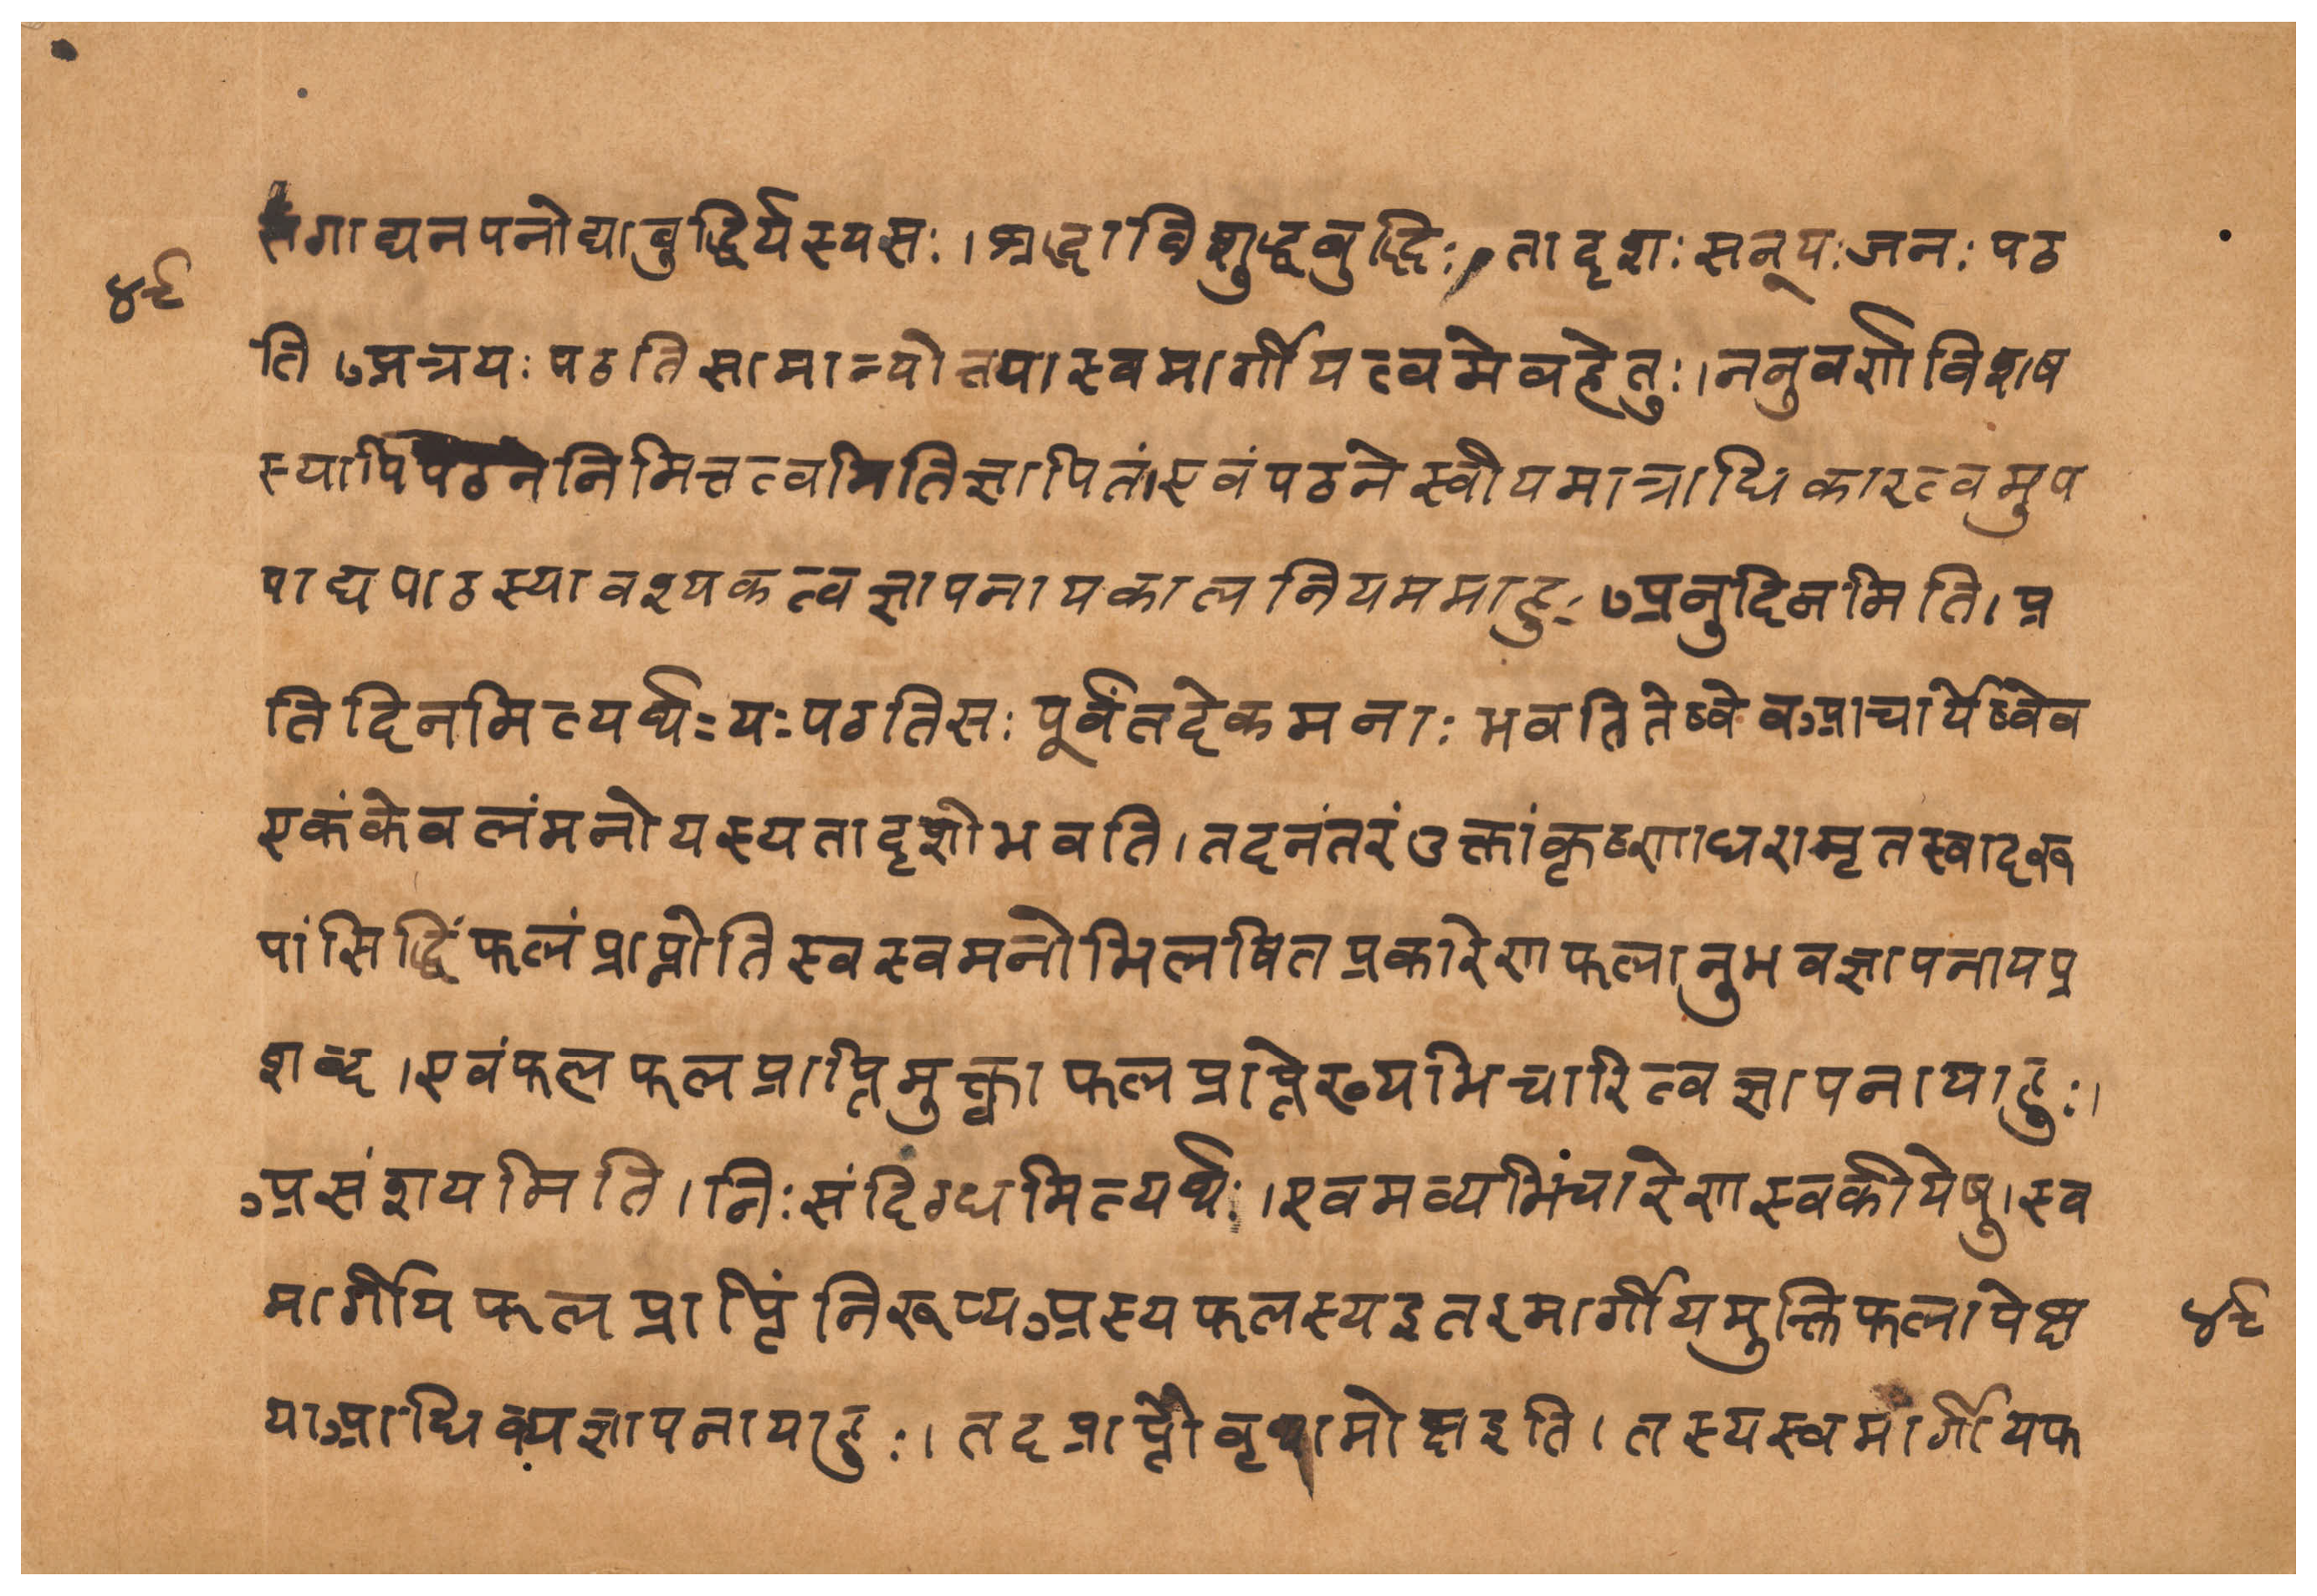 संगाद्यनपनोद्याबुद्धिर्यस्यसः।श्रद्धाविशुद्धबुद्धिः।तादृशःसन्यःजनःपठ
४९
ति।अत्रयःपठतिसामान्योक्त्यास्वमार्गीयत्वमेवहेतुः।ननुवर्णविशेष
स्यापिपठननिमित्तत्वमितिज्ञापितं।एवंपठनेस्वीयमात्राधिकारत्वमुप
पाद्यपाठस्यावश्यकत्वज्ञापनायकालनियममाहुः अनुदिनमिति।प्र
तिदिनमित्यर्थःयःपठतिसःपूर्वंतदेकमनाःभवतितेष्वेवआचार्येष्वेव
एकंकेवलंमनोयस्यतादृशोभवति।तदनंतरंउक्तांकृष्णाधरामृतस्वादरू
पांसिद्धिंफलंप्राप्नोतिस्वस्वमनोभिलषितप्रकारेणफलानुभवज्ञापनायप्र
शब्द।एवंफलफलप्राप्तिमुक्त्वाफलप्राप्तेरव्यभिचारित्वज्ञापनायाहुः।
असंशयमिति।निःसंदिग्धमित्यर्थः।एवमव्यभिंचारेणस्वकीयेषु।स्व
मार्गीयफलप्राप्तिंनिरूप्यअस्यफलस्यइतरमार्गीयमुक्तिफलापेक्ष
४९
याआधिक्यज्ञापनायाहुः।तदप्राप्तौवृथामोक्षइति।तस्यस्वमार्गीयफ